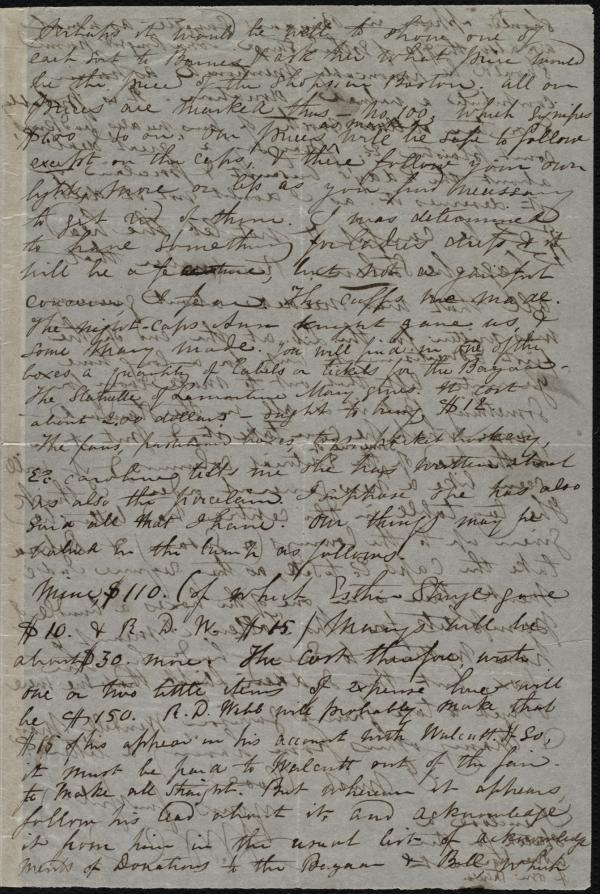 Perhaps it would be well to show one of
each sort to Barnes & ask her what price would
be the price of the shops in Boston. All our
prices are marked thus – No. 100, which signifies
$1.00 & so on. Our prices as marked will be safe to follow
except on the caps, & there follow your own
lights more or less as you find necessary
to get rid of them. I was determined
to have something for ladies' & it
will be a feature, but not a gainful
concern, I fear. The cuffs we made.
The night-caps Ann Knight gave us, &
some Mary made. You will find in one of the
boxes a quantity of labels or tickets for the Bazaar –
The Statuette of Lamartine Mary gives. It cost
about 2.00 dollars – ought to bring
The fans, hosiery,
&c. Caroline tells me she has written about
as also the porcelain I suppose. She has also
said all that I have. Our things may be
valued in the lump as follows.
Mine $110. (of which Esther Sturge gave
$10. & R. D. W. $15.) Mary's will be
about $30. more. The cost therefore, with
one or two little items of expense here will
be $150. R. D. Webb will probably make that
$15 of his appear in his account with Walcutt, & so,
it must be paid to Walcutt out of the fair –
to make all straight. But wherever it appears,
follow his lead about it, and acknowledge
it from him in the usual list of acknowledg-
ments of Donations to the Bazaar & Bell which